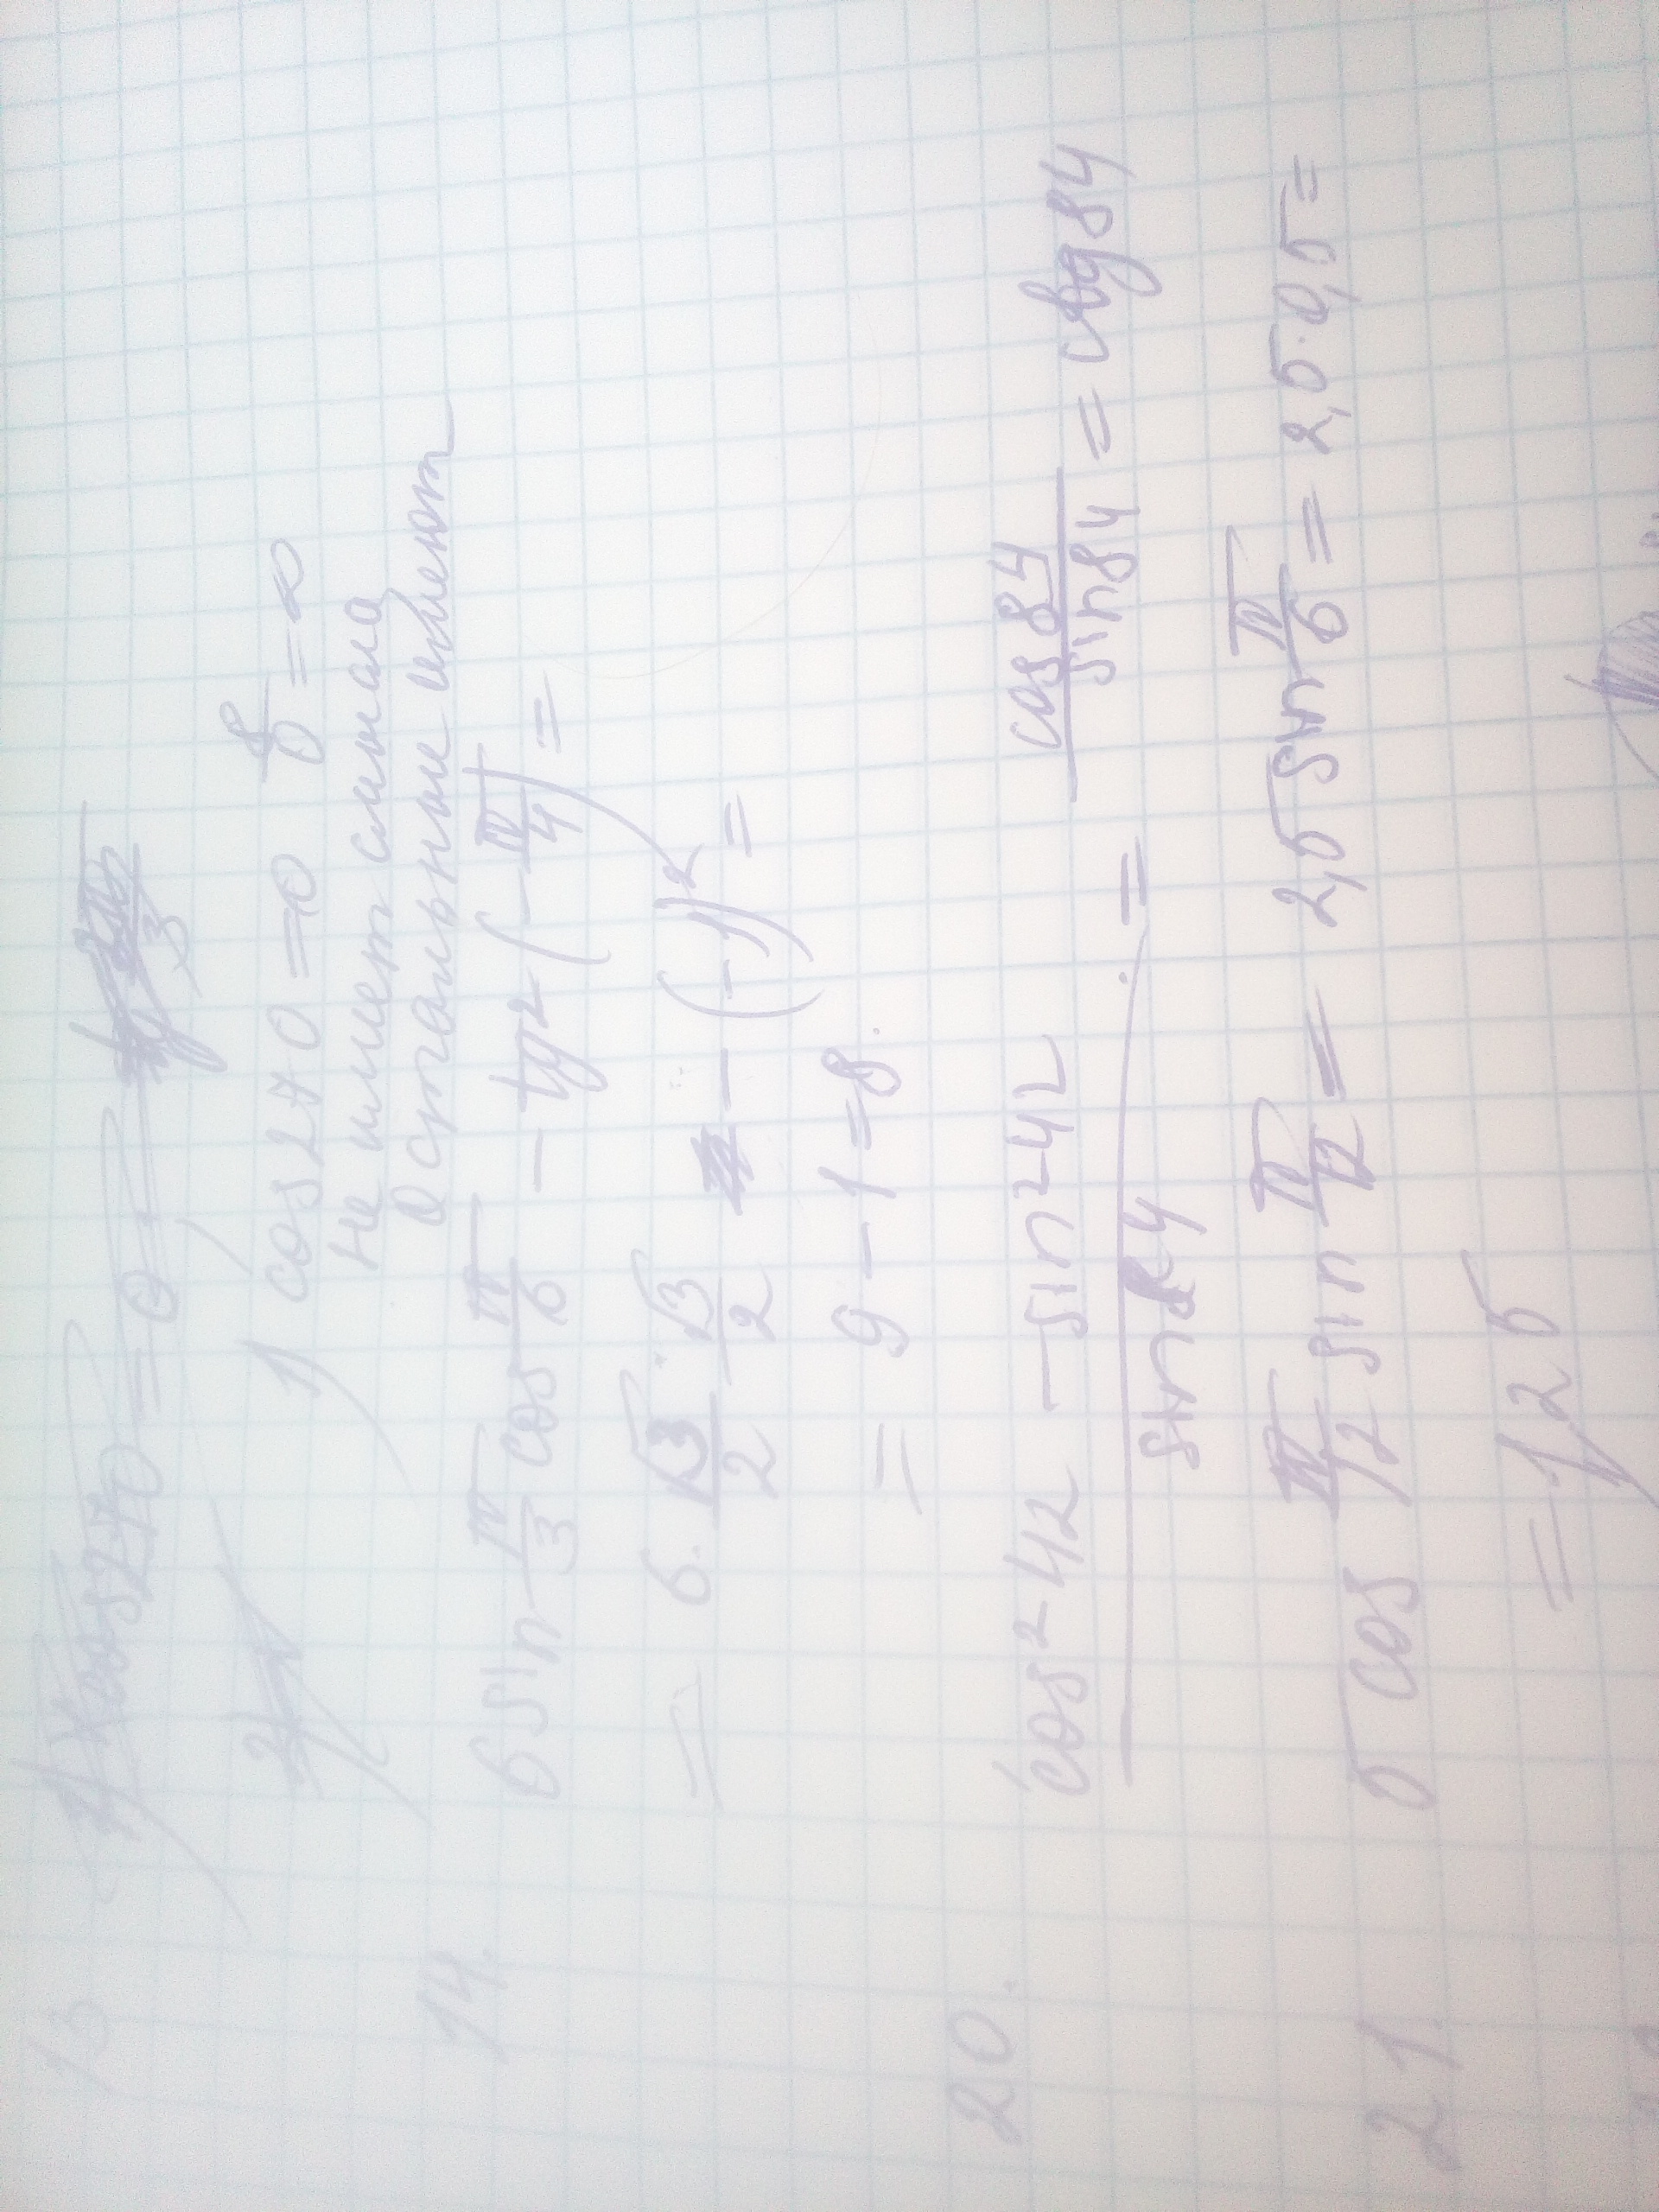 13
1) cos 270 = 0
1) cos 270 = 0 8/0 = ∞
не имеет смысла
Остальные имеют
14. 6 sin π/3 cos π/6 - tg² (-π/4) =
= 6 · √3/2 · √3/2 - (-1)² =
= 9 - 1 = 8.
20. cos² 42 - sin² 42 / sin 84 = cos 84 / sin 84 = ctg 84
21. 5 cos π/12 sin π/12 = 2,5 sin π/6 = 2,5 · 0,5 =
= 1,25